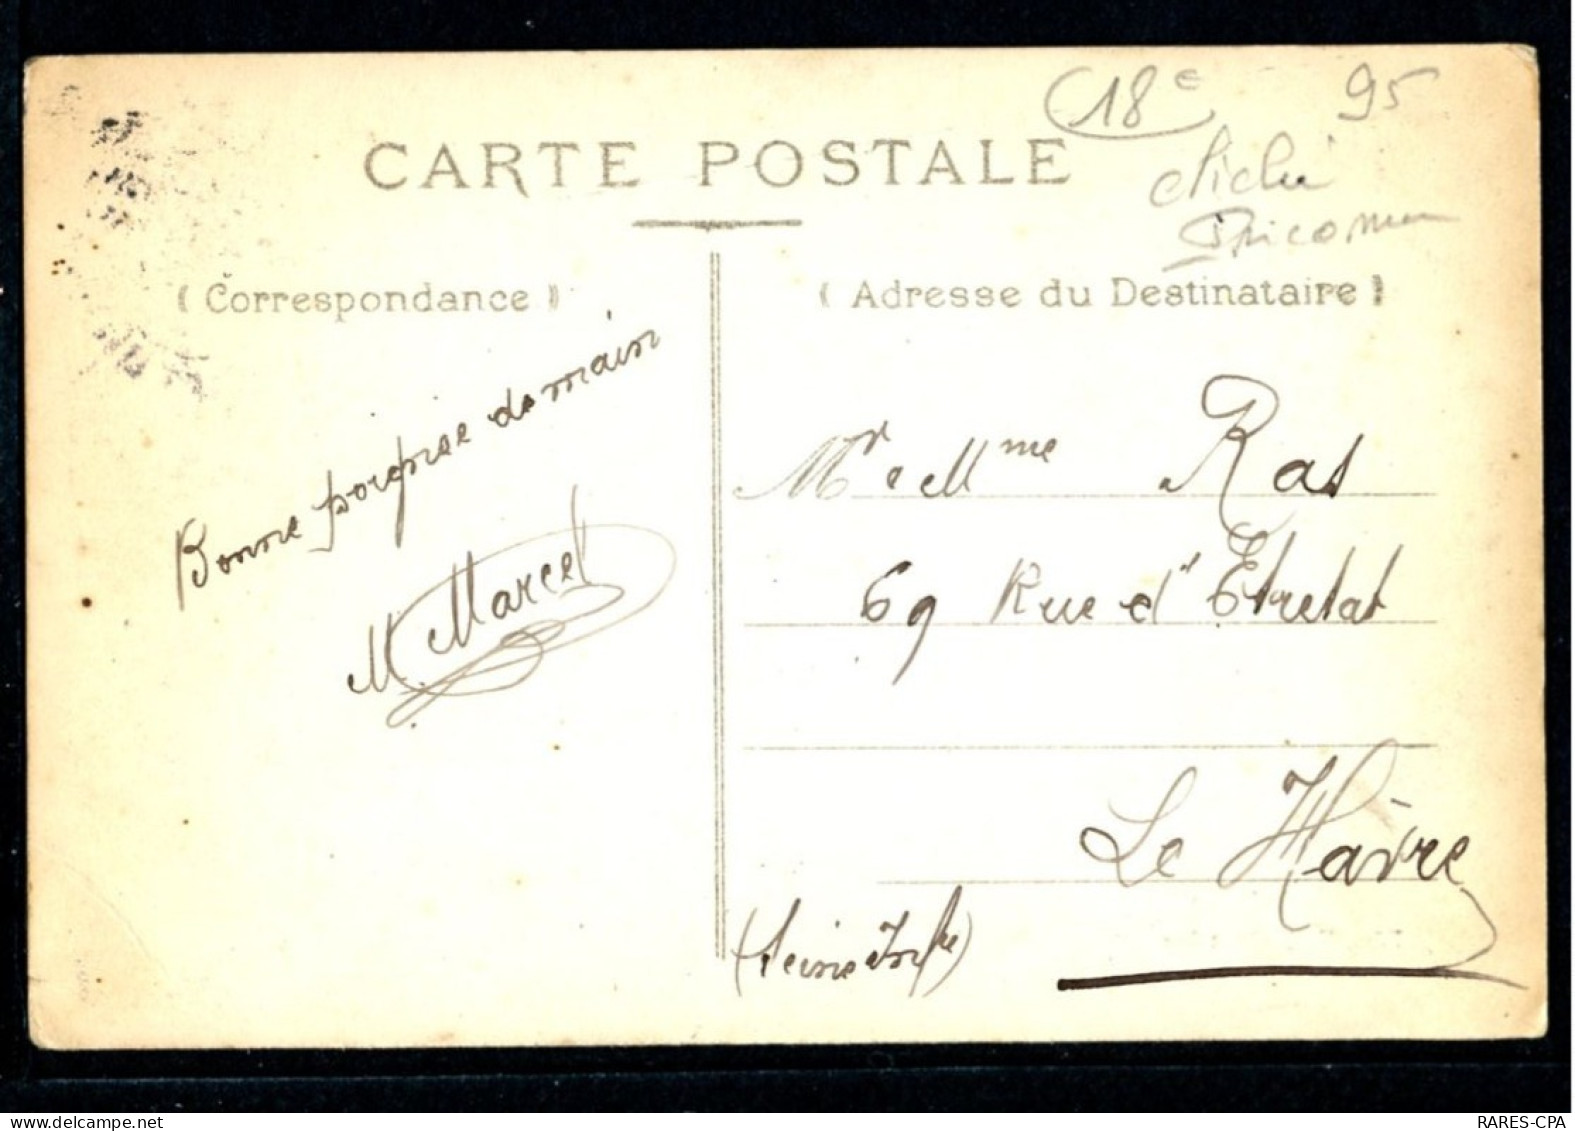 18e 95
CARTE POSTALE
cliché
( Correspondance )
( Adresse du Destinataire )
Bonne poignée de main
M. Marcel
Mr e Mme Ras
69 Rue d'Etretat
Le Hâvre
(Seine Infre)
RARES-CPA